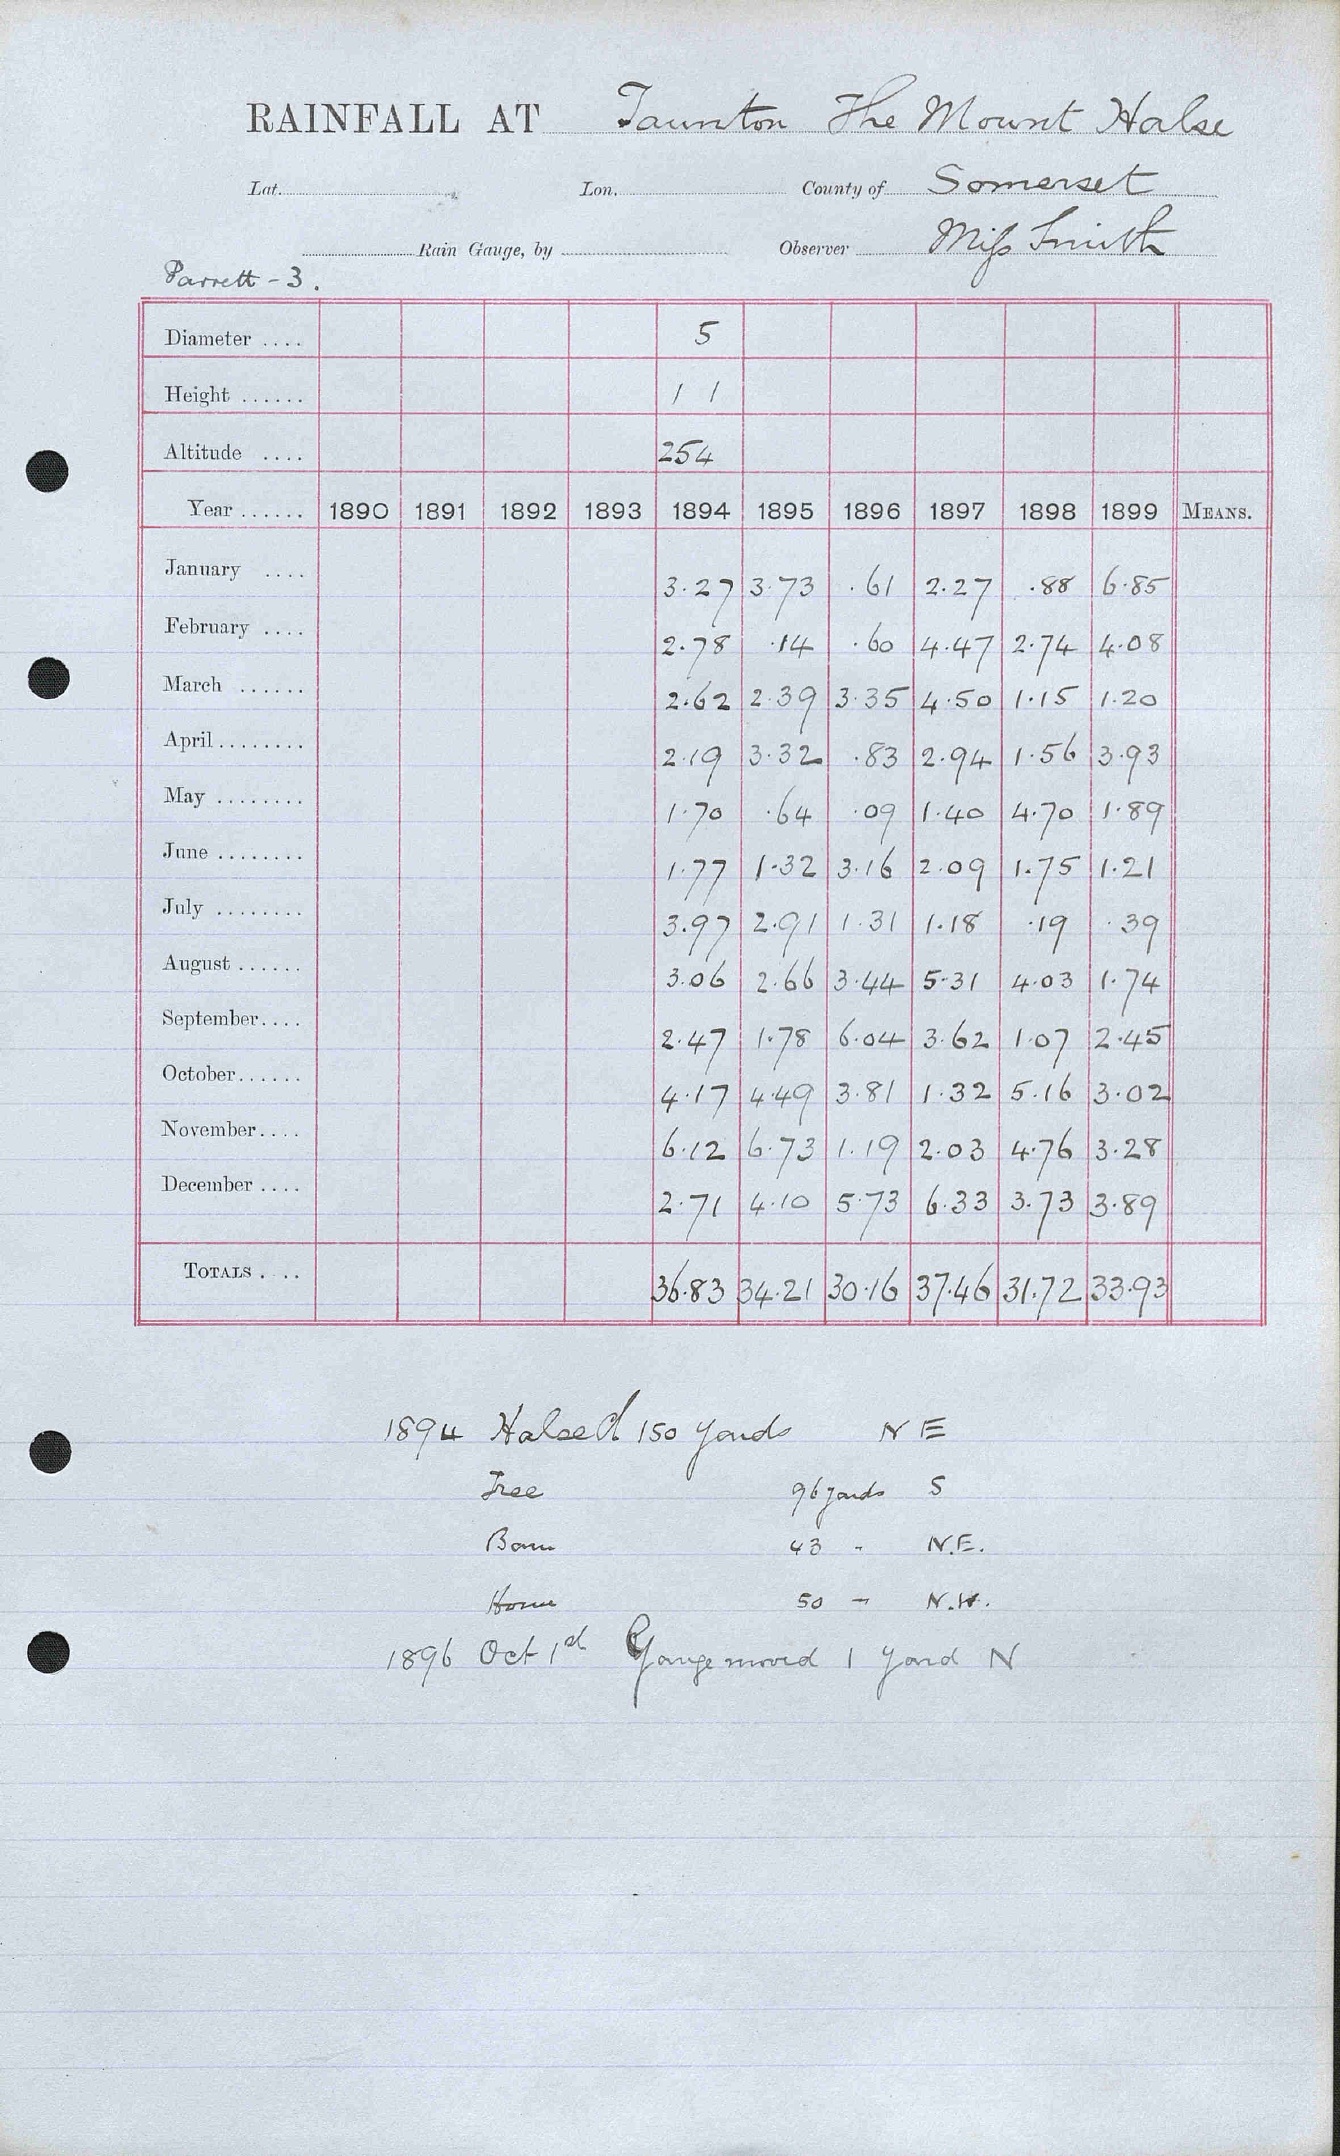 RAINFALL AT Taunton The Mount Halse
Lat. Lon. County of Somerset
Rain Gauge, by Observer Miss Smith
Parrett - 3.
Diameter .... 5
Height ...... 1 1
Altitude .... 254
Year ...... 1890 1891 1892 1893 1894 1895 1896 1897 1898 1899 MEANS.
January .... 3.27 3.73 .61 2.27 .88 6.85
February .... 2.78 .14 .60 4.47 2.74 4.08
March ...... 2.62 2.39 3.35 4.50 1.15 1.20
April ........ 2.19 3.32 .83 2.94 1.56 3.93
May ........ 1.70 .64 .09 1.40 4.70 1.89
June ........ 1.77 1.32 3.16 2.09 1.75 1.21
July ........ 3.97 2.91 1.31 1.18 .19 .39
August ...... 3.06 2.66 3.44 5.31 4.03 1.74
September.... 2.47 1.78 6.04 3.62 1.07 2.45
October...... 4.17 4.49 3.81 1.32 5.16 3.02
November.... 6.12 6.73 1.19 2.03 4.76 3.28
December .... 2.71 4.10 5.73 6.33 3.73 3.89
TOTALS .... 36.83 34.21 30.16 37.46 31.72 33.93
1894 150 yards N E
Tree 96 yards S
Barn 43 " N.E.
House 50 " N.W.
1896 Oct 1st Gauge moved 1 yard N